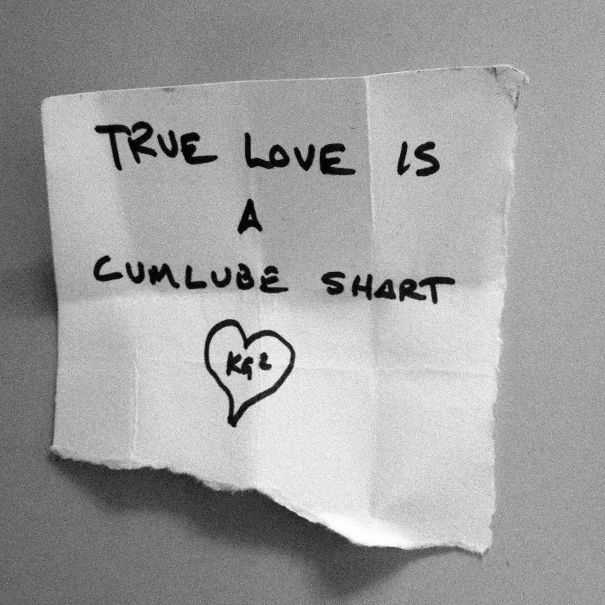 TRUE LOVE IS
A
CUMLUBE SHART
KG2